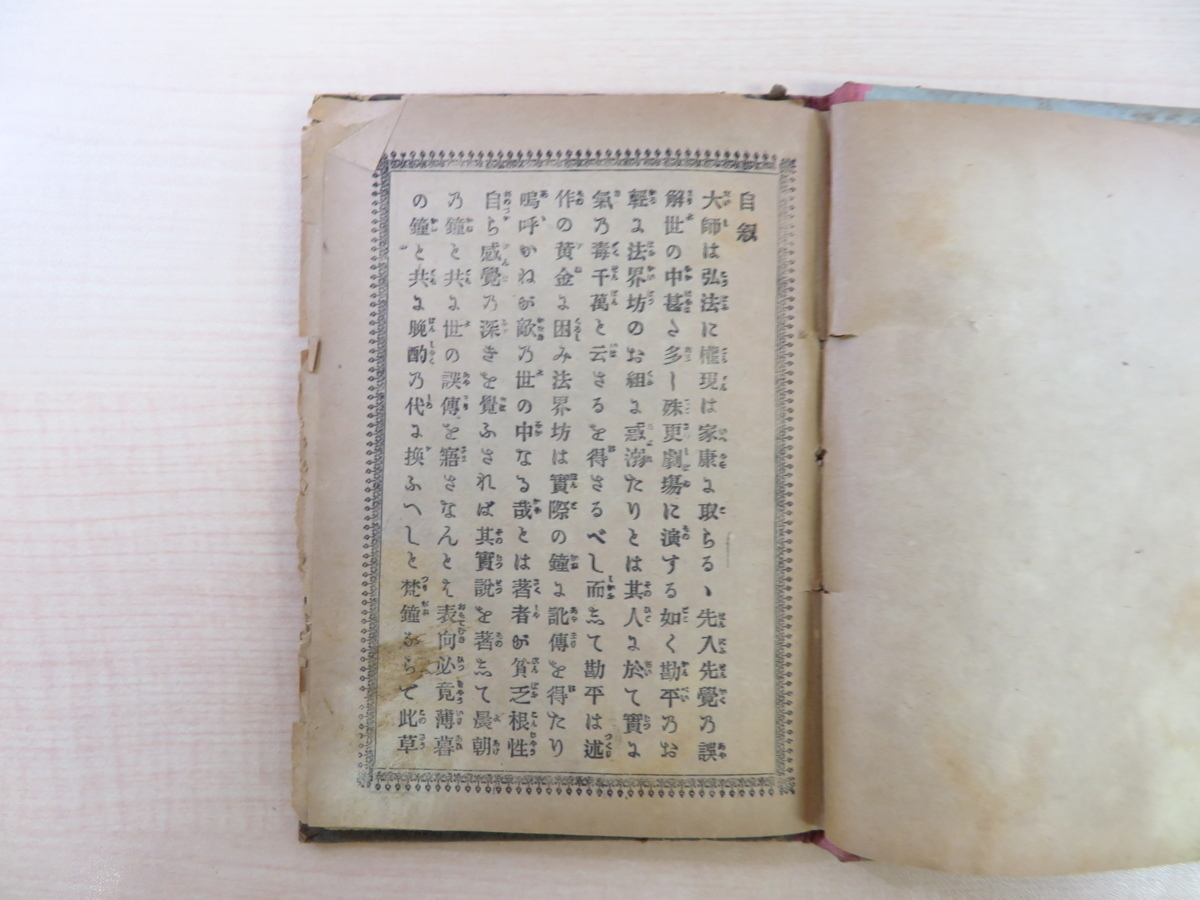 自叙
大師は弘法に權現は家康よ取らるゝ先入先覺乃誤
解世の中甚さ多し殊更劇塲に演する如く勘平乃お
輕よ法界坊のお組よ惑溺たりとは其人よ於て實よ
氣乃毒千萬と云さるを得さるべし而志て勘平は述
作の黄金よ困み法界坊は實際の鐘よ訛傳を得たり
嗚呼かねが敵乃世の中なる哉とは著者が貧乏根性
自ら感覺乃深きを覺ふされば其實説を著志て晨朝
乃鐘と共よ世の誤傳を寤さなんとえ表向必竟薄暮
の鐘と共よ晩酌乃代よ換ふへしと梵鐘ならで此草